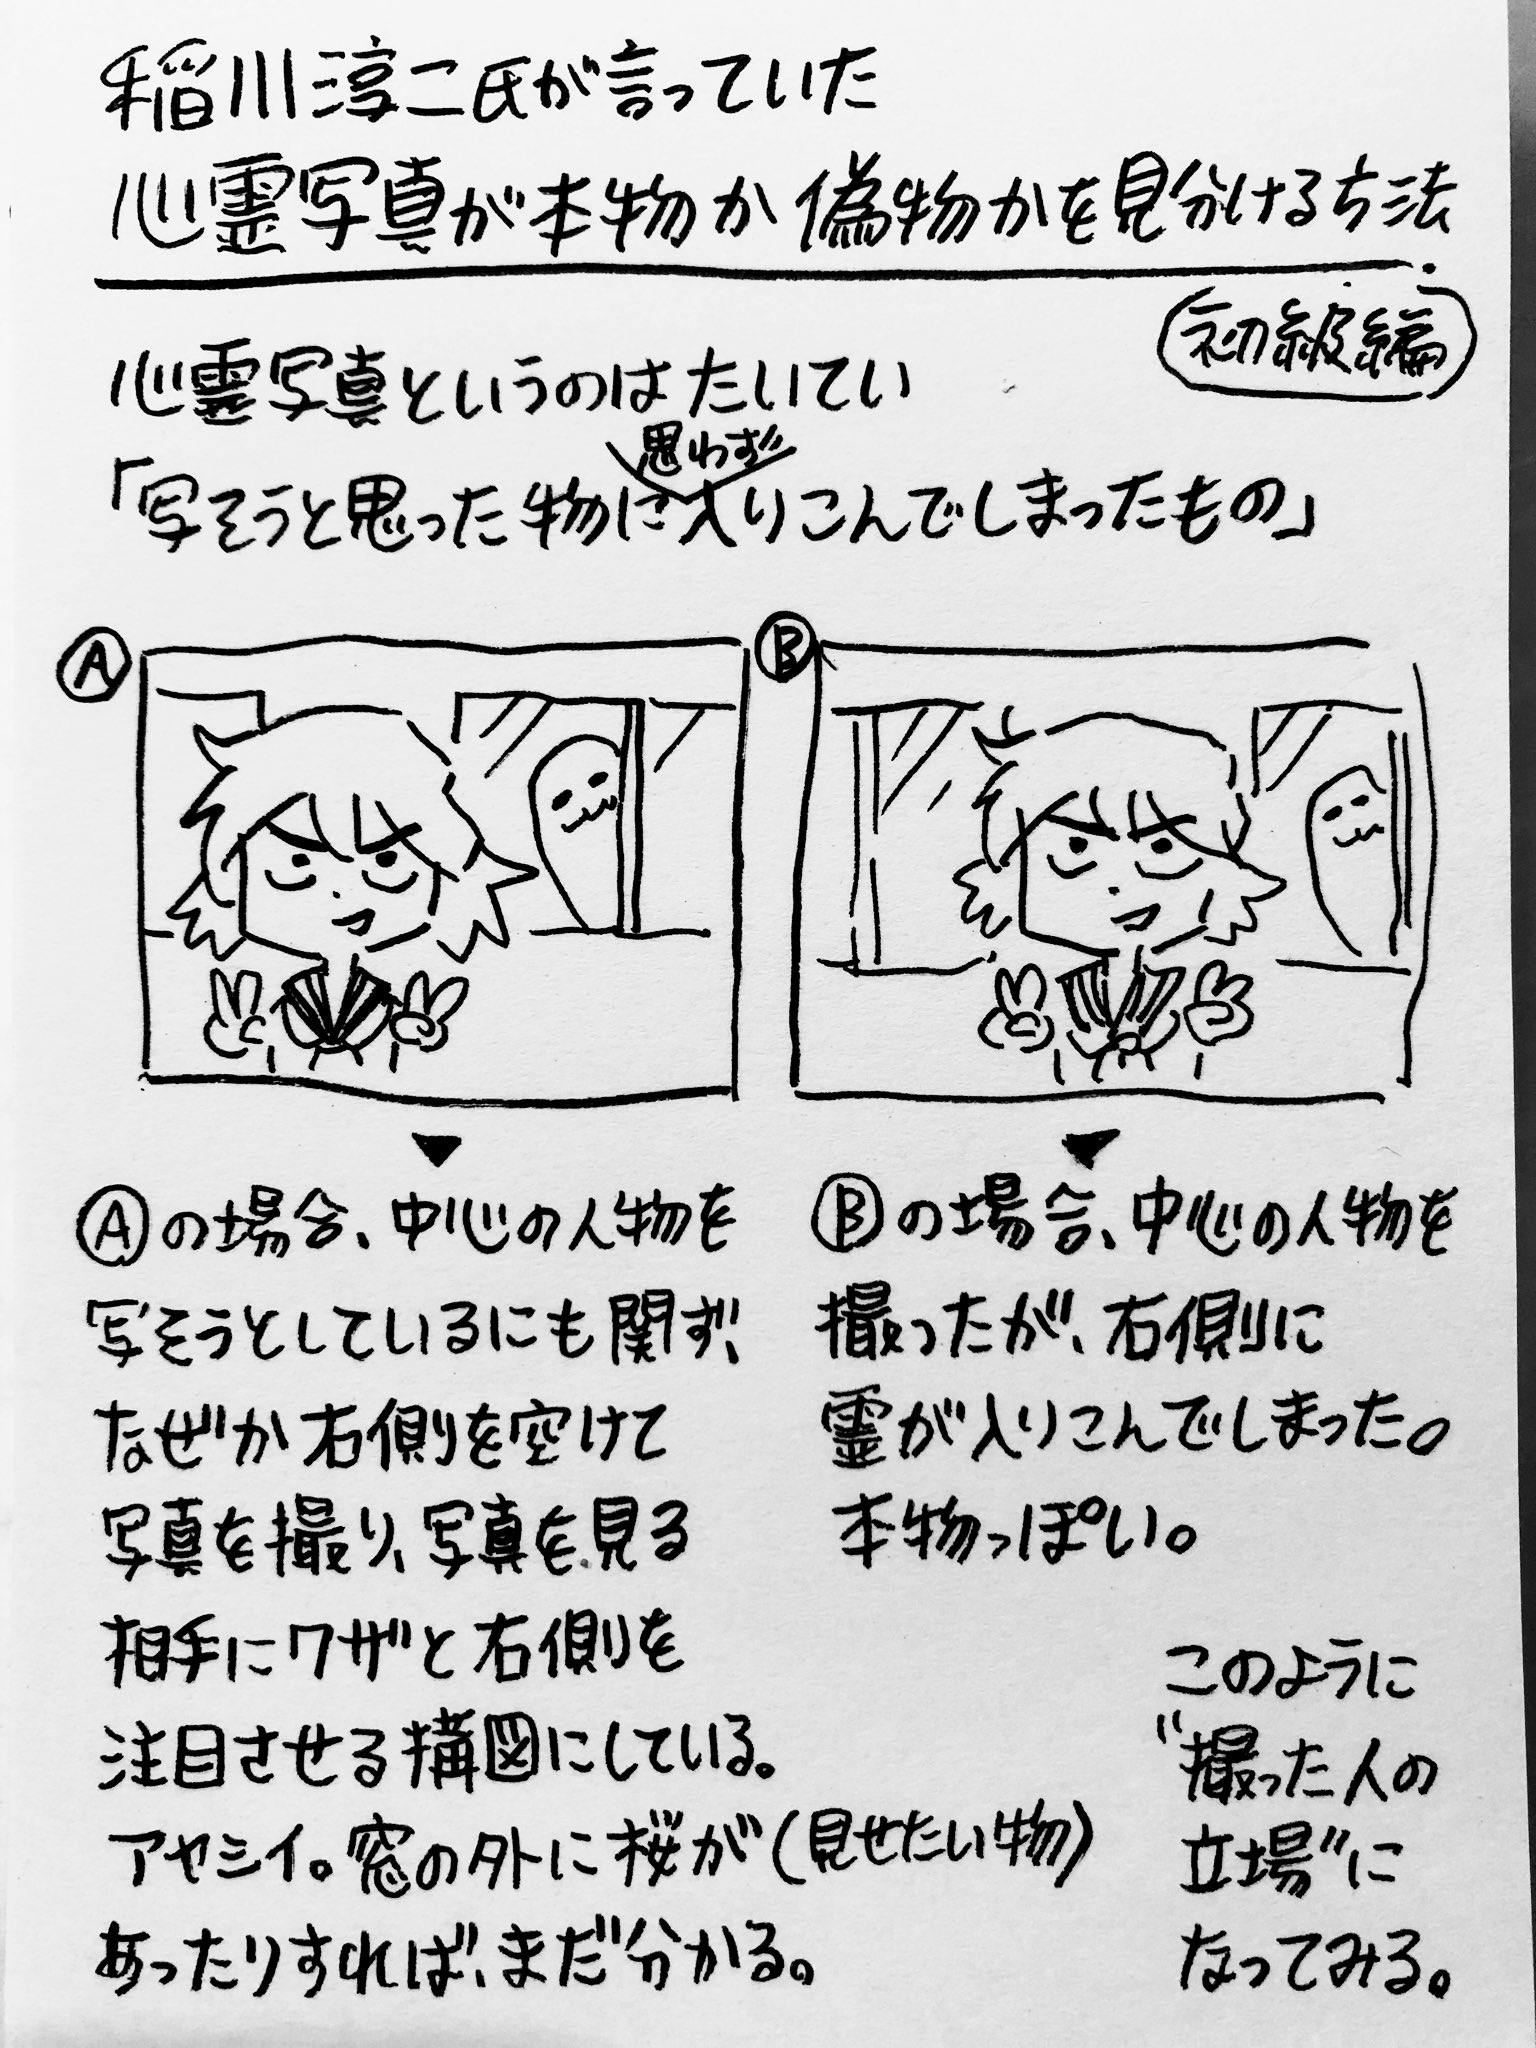 稲川淳二氏が言っていた
心霊写真が本物か偽物かを見分ける方法
初級編
心霊写真というのはたいてい
思わず
「写そうと思った物に入りこんでしまったもの」
A
B
Aの場合、中心の人物を
写そうとしているにも関ず、
なぜか右側を空けて
写真を撮り、写真を見る
相手にワザと右側を
注目させる構図にしている。
アヤシイ。窓の外に桜が(見せたい物)
あったりすれば、まだ分かる。
Bの場合、中心の人物を
撮ったが、右側に
霊が入りこんでしまった。
本物っぽい。
このように
"撮った人の
立場"に
なってみる。